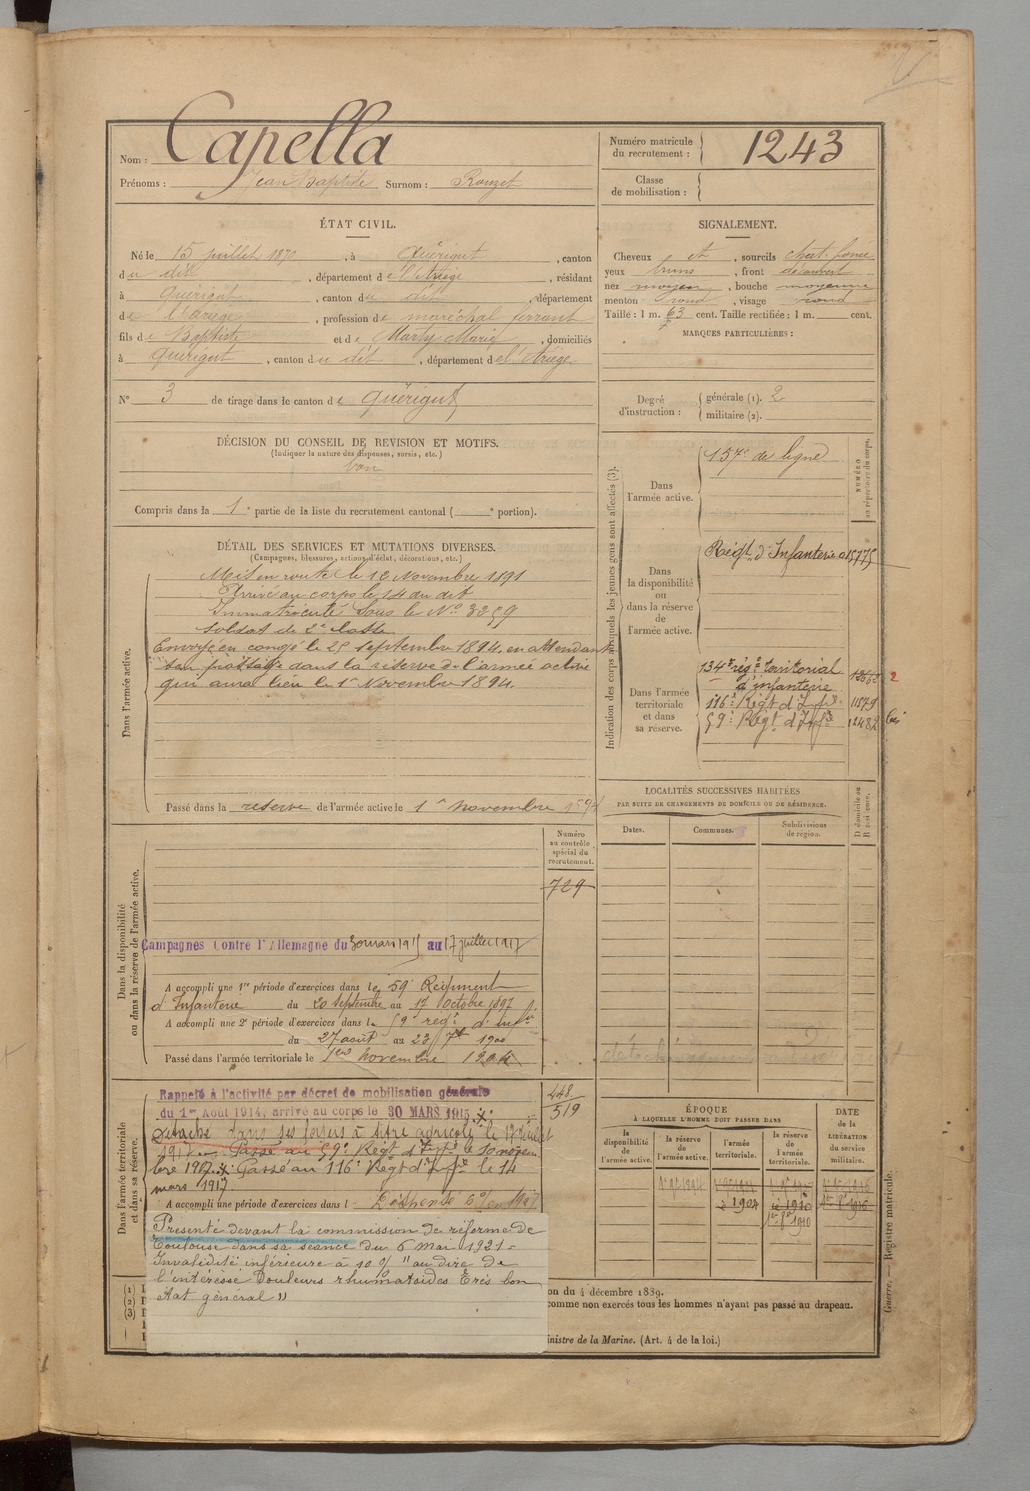 Nom : Capella
Prénoms : Jean Baptiste Surnom : Rouzet
Numéro matricule du recrutement : 1243
Classe de mobilisation :
ÉTAT CIVIL.
Né le 15 juillet 1870, à Quérigut, canton
du dit, département de l'Ariège, résidant
à Quérigut, canton du dit, département
de l'Ariège, profession de maréchal ferrant
fils de Baptiste et de Marty Marie, domiciliés
à Quérigut, canton du dit, département de l'Ariège
N° 3 de tirage dans le canton de Quérigut
SIGNALEMENT.
Cheveux et, sourcils chat. foncé
yeux bruns, front découvert
nez moyen, bouche moyenne
menton rond, visage rond
Taille : 1 m. 63 cent. Taille rectifiée : 1 m. cent.
MARQUES PARTICULIÈRES :
Degré d'instruction : générale (1). 2
militaire (2).
DÉCISION DU CONSEIL DE REVISION ET MOTIFS.
(Indiquer la nature des dispenses, sursis, etc.)
bon
Compris dans la 1e partie de la liste du recrutement cantonal ( e portion).
DÉTAIL DES SERVICES ET MUTATIONS DIVERSES.
(Campagnes, blessures, actions d'éclat, décorations, etc.)
Dans l'armée active.
Mis en route le 12 Novembre 1891
Arrivé au corps le 14 du dit
Immatriculé sous le N° 3259
soldat de 2e classe
Envoyé en congé le 25 septembre 1894, en attendant
son passage dans la réserve de l'armée active
qui aura lieu le 1er Novembre 1894.
Passé dans la réserve de l'armée active le 1er novembre 1894
Indication des corps auxquels les jeunes gens sont affectés (3).
NUMÉRO au répertoire du corps.
Dans l'armée active.
157e de ligne
Dans la disponibilité ou dans la réserve de l'armée active.
Régt d'Infanterie
Dans l'armée territoriale et dans sa réserve.
134e régt territorial
d'infanterie
116e Régt d'Infie 11579
59e Régt d'Infie 12482 bis
LOCALITÉS SUCCESSIVES HABITÉES
PAR SUITE DE CHANGEMENTS DE DOMICILE OU DE RÉSIDENCE.
Dates. Communes. Subdivisions de région. D domicile ou R résidence.
Dans la disponibilité ou dans la réserve de l'armée active.
Numéro au contrôle spécial du recrutement.
729
Campagnes Contre l'Allemagne du 30 mars 1915 au 17 juillet 1917
A accompli une 1re période d'exercices dans le 59e Régiment
d'Infanterie du 20 septembre au 17 Octobre 1897
A accompli une 2e période d'exercices dans le 59e régt d'Infie
du 27 août au 23 7bre 1900
Passé dans l'armée territoriale le 1er novembre 1904
Dans l'armée territoriale et dans sa réserve.
448
519
Rappelé à l'activité par décret de mobilisation générale
du 1er Août 1914, arrivé au corps le 30 MARS 1915
Détaché dans ses foyers à titre agricole le 17 juillet
1917 Passé au 59e Régt d'Infie le 10 novem
bre 1917 Passé au 116e Régt d'Infie le 14
mars 1917
A accompli une période d'exercices dans l
Présenté devant la commission de réforme de
Toulouse dans sa séance du 6 mai 1921 =
Invalidité inférieure à 10 % "au dire de
l'intéressé Douleurs rhumatoïdes Très bon
état général"
ÉPOQUE
À LAQUELLE L'HOMME DOIT PASSER DANS
la disponibilité de l'armée active. la réserve de l'armée active. l'armée territoriale. la réserve de l'armée territoriale.
DATE de la LIBÉRATION du service militaire.
1904 1910 1916
1910
on du 4 décembre 1889.
comme non exercés tous les hommes n'ayant pas passé au drapeau.
inistre de la Marine. (Art. 4 de la loi.)
(1)
(2)
(3)
Guerre. — Registre matricule.